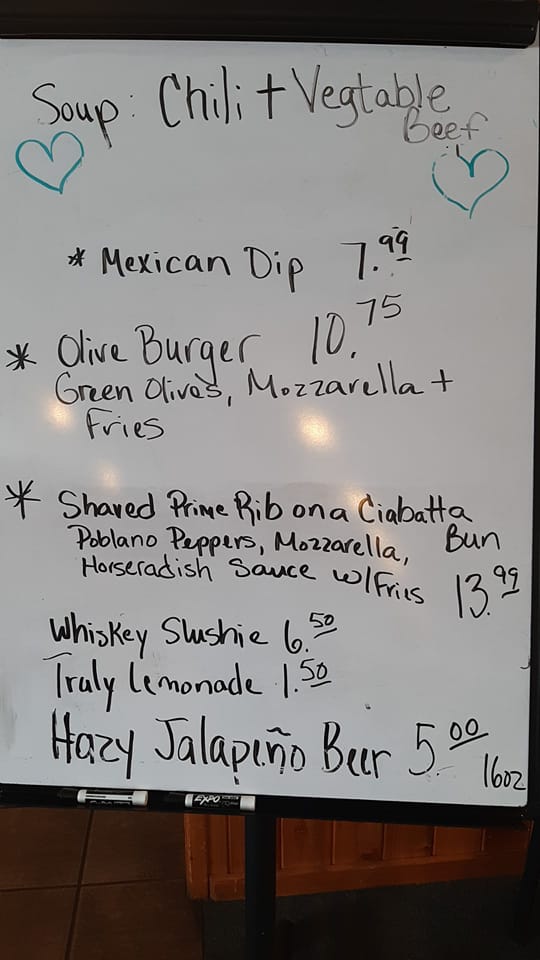 Soup: Chili + Vegtable
Beef
* Mexican Dip 7.99
* Olive Burger 10.75
Green Olives, Mozzarella +
Fries
* Shaved Prime Rib on a Ciabatta
Bun
Poblano Peppers, Mozzarella,
Horseradish Sauce w/Fries 13.99
Whiskey Slushie 6.50
Truly Lemonade 1.50
Hazy Jalapeño Beer 5.00
16oz
EXPO